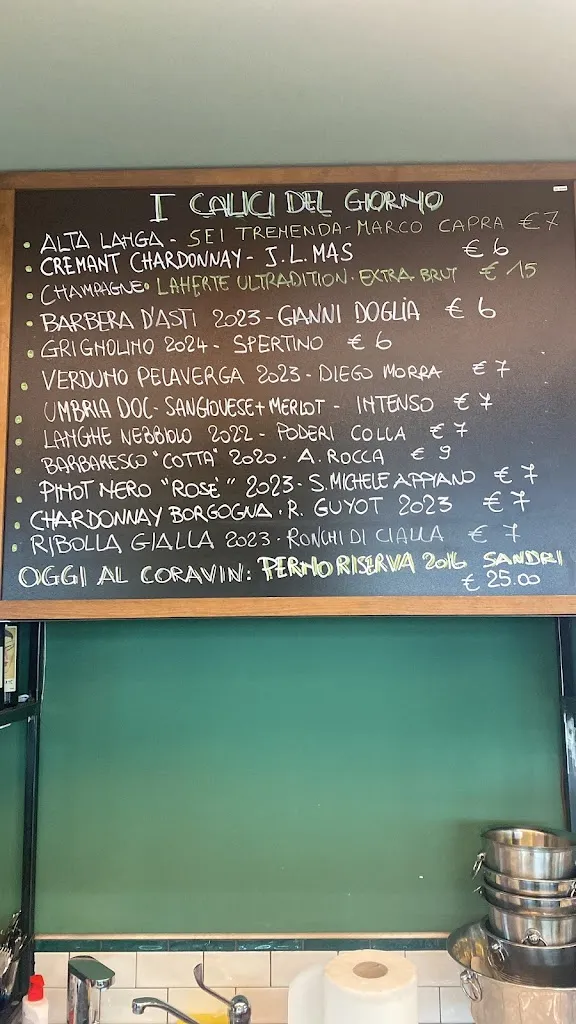 I CALICI DEL GIORNO
• ALTA LANGA - SEI TREMENDA - MARCO CAPRA €7
• CREMANT CHARDONNAY - J.L. MAS € 6
• CHAMPAGNE • LAHERTE ULTRADITION • EXTRA BRUT € 15
• BARBERA D'ASTI 2023 - GIANNI DOGLIA € 6
• GRIGNOLINO 2024 - SPERTINO € 6
• VERDUNO PELAVERGA 2023 - DIEGO MORRA € 7
• UMBRIA DOC - SANGIOVESE + MERLOT - INTENSO € 7
• LANGHE NEBBIOLO 2022 - PODERI COLLA € 7
• BARBARESCO "COTTA" 2020 - A. ROCCA € 9
• PINOT NERO "ROSE'" 2023 - S. MICHELE APPIANO € 7
• CHARDONNAY BORGOGNA • R. GUYOT 2023 € 7
• RIBOLLA GIALLA 2023 - RONCHI DI CIALLA € 7
OGGI AL CORAVIN: PERNO RISERVA 2016 SANDRI
€ 25.00